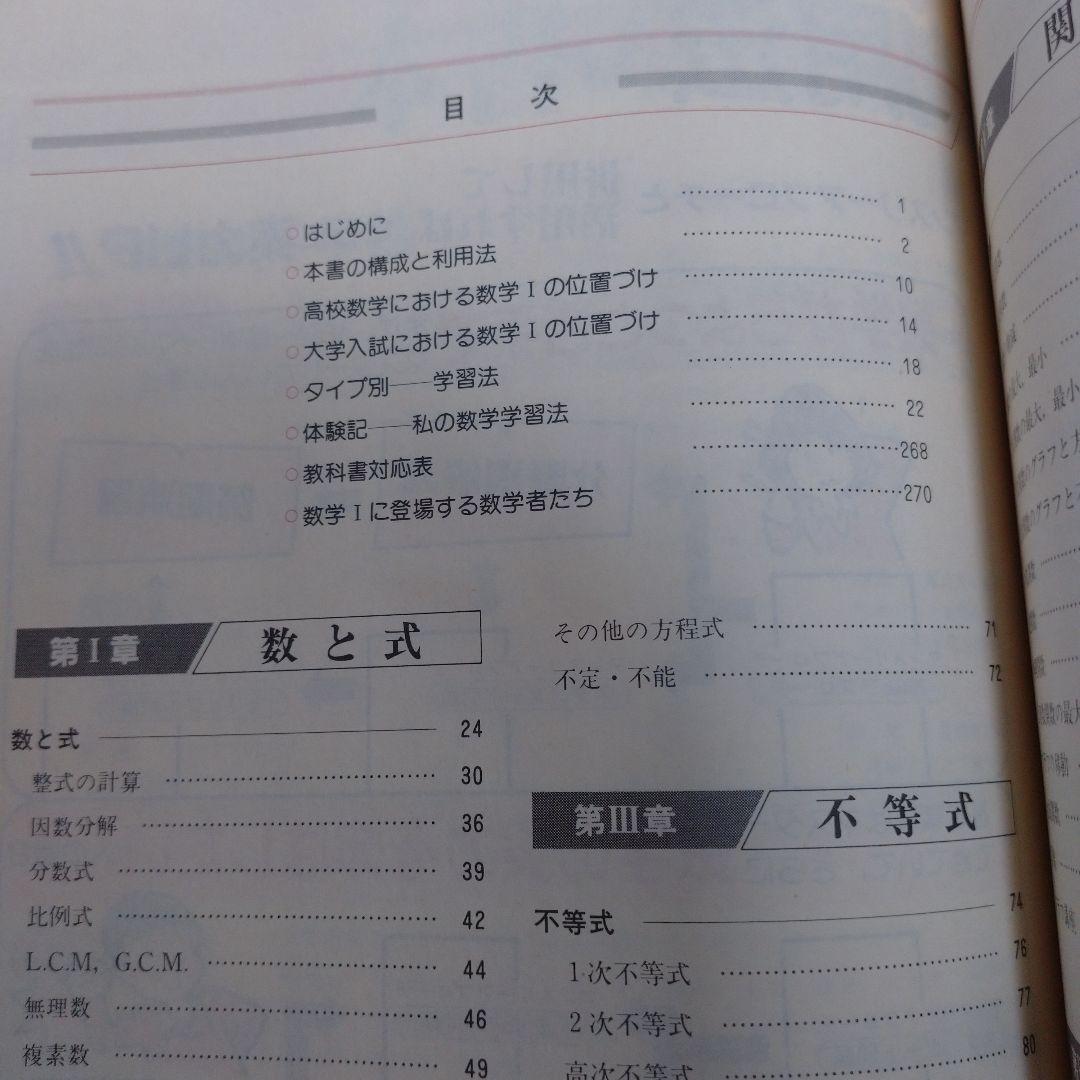 目次
はじめに 1
本書の構成と利用法 2
高校数学における数学Ⅰの位置づけ 10
大学入試における数学Ⅰの位置づけ 14
タイプ別――学習法 18
体験記――私の数学学習法 22
教科書対応表 268
数学Ⅰに登場する数学者たち 270
第Ⅰ章 数と式
数と式 24
整式の計算 30
因数分解 36
分数式 39
比例式 42
L.C.M, G.C.M. 44
無理数 46
複素数 49
その他の方程式 71
不定・不能 72
第Ⅲ章 不等式
不等式 74
1次不等式 76
2次不等式 77
高次不等式 80
関
最大, 最小
の最大, 最小
のグラフと
のグラフと